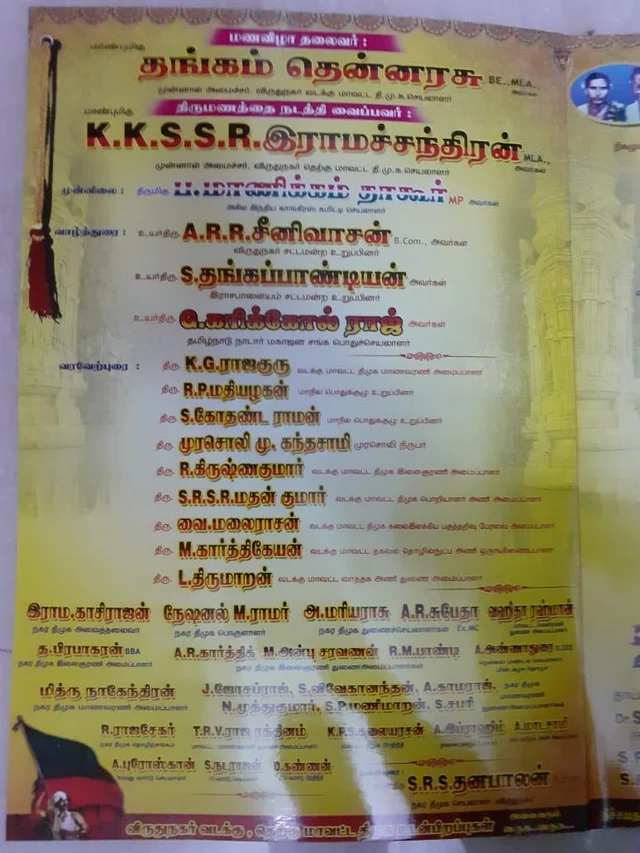 மணவிழா தலைவர் :
மாண்புமிகு தங்கம் தென்னரசு BE.,MLA., அவர்கள்
முன்னாள் அமைச்சர், விருதுநகர் வடக்கு மாவட்ட தி.மு.க.செயலாளர்
திருமணத்தை நடத்தி வைப்பவர் :
மாண்புமிகு K.K.S.S.R.இராமச்சந்திரன் MLA., அவர்கள்
முன்னாள் அமைச்சர், விருதுநகர் தெற்கு மாவட்ட தி.மு.க.செயலாளர்
முன்னிலை : திருமிகு ப.மாணிக்கம் தாகூர் MP அவர்கள்
அகில இந்திய காங்கிரஸ் கமிட்டி செயலாளர்
வாழ்த்துரை : உயர்திரு. A.R.R.சீனிவாசன் B.Com., அவர்கள்
விருதுநகர் சட்டமன்ற உறுப்பினர்
உயர்திரு. S.தங்கப்பாண்டியன் அவர்கள்
இராசபாளையம் சட்டமன்ற உறுப்பினர்
உயர்திரு. G.கரிக்கோல் ராஜ் அவர்கள்
தமிழ்நாடு நாடார் மகாஜன சங்க பொதுச்செயலாளர்
வரவேற்புரை : திரு. K.G.ராஜகுரு வடக்கு மாவட்ட திமுக மாணவரணி அமைப்பாளர்
திரு. R.P.மதியழகன் மாநில பொதுக்குழு உறுப்பினர்
திரு. S.கோதண்ட ராமன் மாநில பொதுக்குழு உறுப்பினர்
திரு. முரசொலி மு. கந்தசாமி முரசொலி நிருபர்
திரு. R.கிருஷ்ணகுமார் வடக்கு மாவட்ட திமுக இளைஞரணி அமைப்பாளர்
திரு. S.R.S.R.மதன் குமார் வடக்கு மாவட்ட திமுக பொறியாளர் அணி அமைப்பாளர்
திரு. வை.மலைராசன் வடக்கு மாவட்ட திமுக கலைஇலக்கிய பகுத்தறிவு பேரவை அமைப்பாளர்
திரு. M.கார்த்திகேயன் வடக்கு மாவட்ட தகவல் தொழில்நுட்ப அணி ஒருங்கிணைப்பாளர்
திரு. L.திருமாறன் வடக்கு மாவட்ட வர்த்தக அணி துணை அமைப்பாளர்
இராம.காசிராஜன் நேஷனல் M.ராமர் அ.மரியராசு A.R.சுபேதா வஹிதா ரஹ்மான்
நகர திமுக அவைத்தலைவர் நகர திமுக பொருளாளர் நகர திமுக துணைச்செயலாளர்கள் Ex.MC
த.பிரபாகரன் BBA A.R.கார்த்திக் M.அன்பு சரவணன் R.M.பாண்டி A.அண்ணாதுரை
நகர திமுக இளைஞரணி அமைப்பாளர் நகர திமுக இளைஞரணி துணைஅமைப்பாளர்கள்
மித்ரு நாகேந்திரன் J.ஜோசப்ராஜ், S.விவேகானந்தன், A.காமராஜ், நகர திமுக
நகர திமுக மாணவரணி அமைப்பாளர் N.முத்துகுமார், S.P.மணிமாறன், S.சபரி
R.ராஜசேகர் T.R.V.ராஜ ரத்தினம் K.P.S.கலையரசன் A.இப்ராஹிம் A.மாடசாமி
A.புரோஸ்கான் S.நடராஜன் D.கண்ணன்
S.R.S.தனபாலன்
நகர திமுக செயலாளர்
விருதுநகர் வடக்கு , தெற்கு மாவட்ட